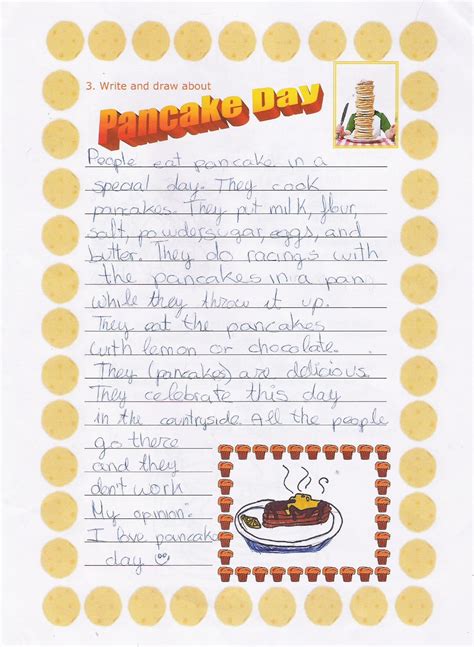 3. Write and draw about
Pancake Day
People eat pancake in a
special day. They cook
pancakes. They put milk, flour,
salt, powder, sugar, eggs, and
butter. They do racings with
the pancakes in a pan
while they throw it up.
They eat the pancakes
with lemon or chocolate.
They (pancakes) are delicious.
They celebrate this day
in the countryside. All the people
go there
and they
don't work
My opinion:
I love pancake
day